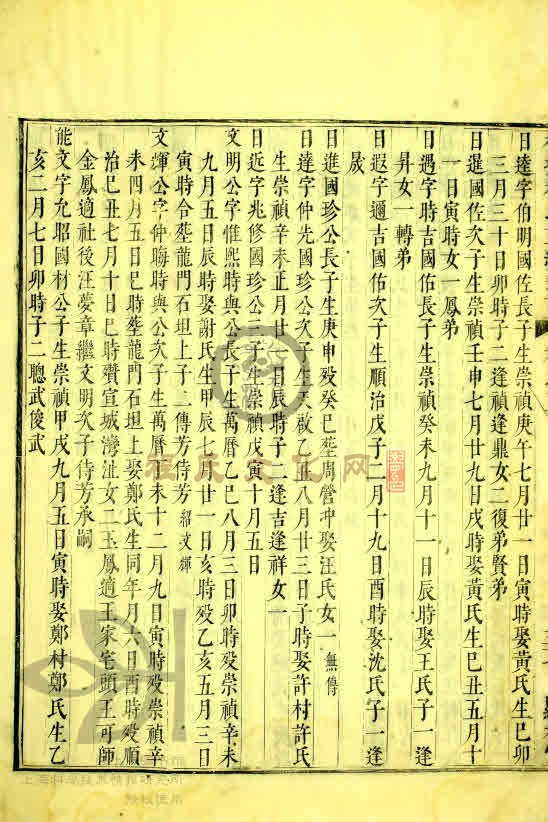 日逵字伯明國佐長子生崇禎庚午七月廿一日寅時娶黃氏生己卯
三月三十日卯時子二逢禎逢鼎女二復弟賢弟
日暹國佐次子生崇禎壬申七月廿九日戌時娶黃氏生己丑五月十
一日寅時女一鳳弟
日遇字時吉國佑長子生崇禎癸未九月十一日辰時娶王氏子一逢
昇女一轉弟
日遐字邇吉國佑次子生順治戊子二月十九日酉時娶沈氏子一逢
晟
日進國珍公長子生庚申殁癸巳塟周營冲娶汪氏女一無傳
日達字仲先國珍公次子生天啟乙丑八月廿三日子時娶許村許氏
生崇禎辛未正月廿日辰時子二逢吉逢祥女一
日近字兆修國珍公三子生崇禎戊寅十月五日
文明公字惟熙時與公長子生萬曆乙巳八月三日卯時殁崇禎辛未
九月五日辰時娶謝氏生甲辰七月廿一日亥時殁乙亥五月三日
寅時合塟龍門石坦上子二傳芳侍芳紹文輝
文煇公字仲晦時與公次子生萬曆丁未十二月九日寅時殁崇禎辛
未四月五日巳時塟龍門石坦上娶鄭氏生同年月六日酉時殁順
治己丑七月十日巳時殯宣城灣沚女二玉鳳適王家宅頭王可師
金鳳適社後汪夢章繼文明次子侍芳承嗣
能文字允昭國材公子生崇禎甲戌九月五日寅時娶鄭村鄭氏生乙
亥二月七日卯時子二聰武俊武